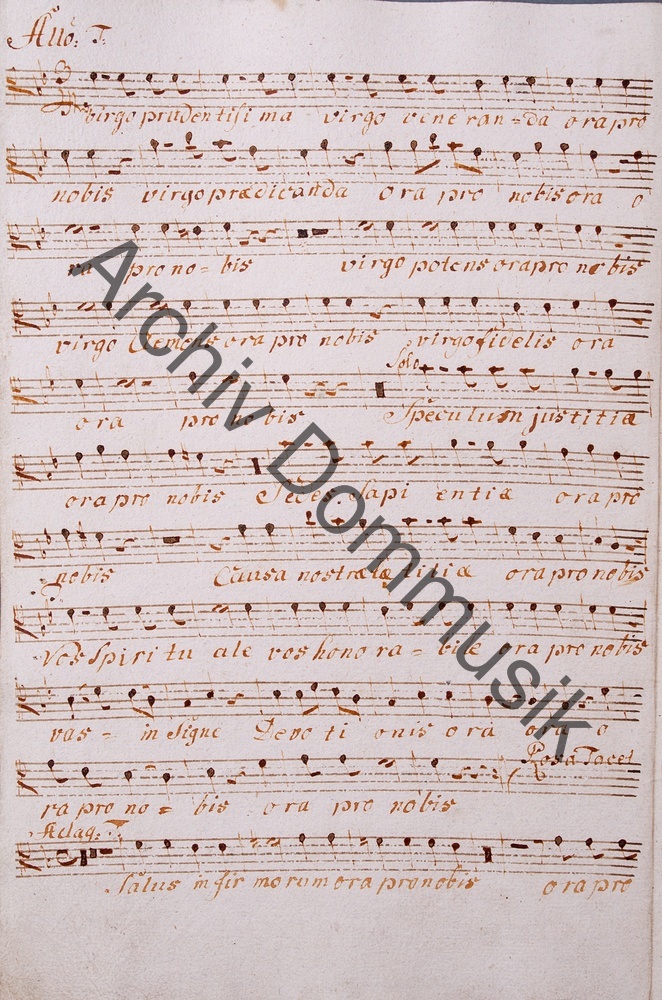 Allo: T:
virgo prudentissi ma virgo vene ran = da ora pro
nobis virgo prædicanda ora pro nobis ora o
ra pro no = bis virgo potens ora pro nobis
virgo Clemens ora pro nobis virgo fidelis ora
Solo
ora pro no bis Speculum justitiæ
ora pro nobis Sedes Sapi entiæ ora pro
nobis Causa nostræ lætitiæ ora pro nobis
vas Spiri tu ale vas hono ra = bile ora pro nobis
vas = in Signe Devo ti onis ora ora o
Rosa Tacet
ra pro no = bis ora pro nobis
Adag: T:
Salus in fir morum ora pro nobis ora pro
Archiv Dommusik